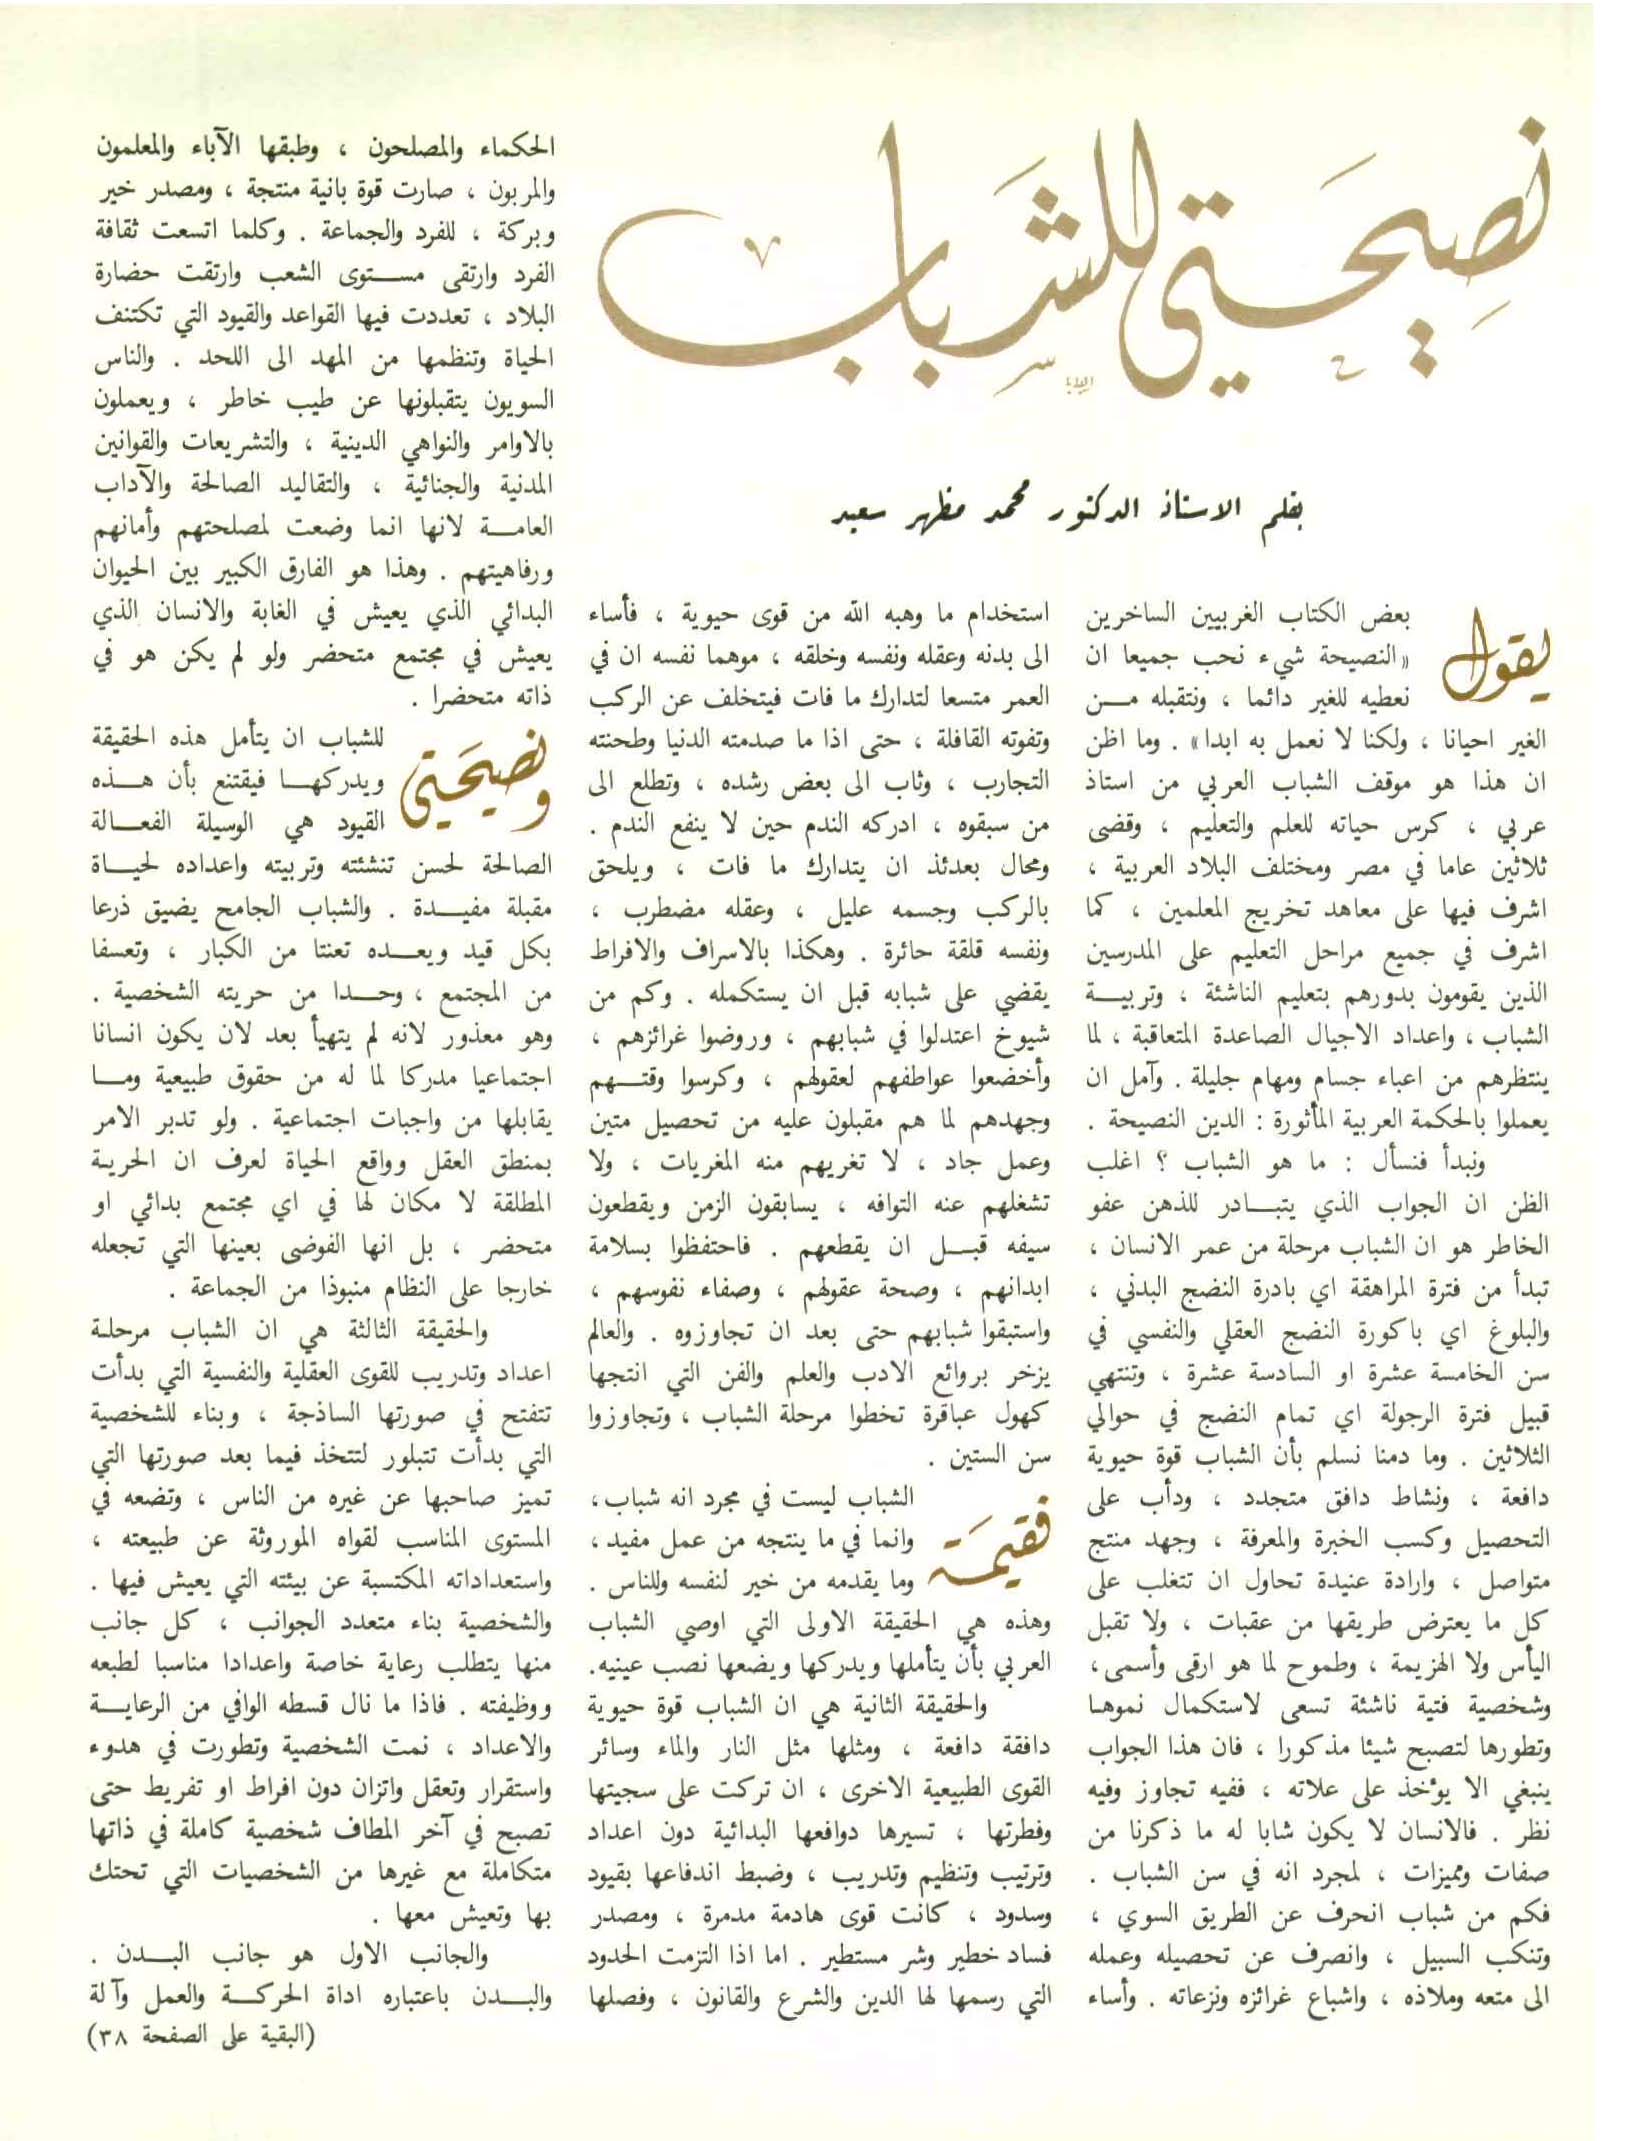 نصيحتي للشباب
بقلم الاستاذ الدكتور محمد مظهر سعيد
يقول بعض الكتاب الغربيين الساخرين
«النصيحة شيء نحب جميعا ان
نعطيه للغير دائما ، ونتقبله مـن
الغير احيانا ، ولكنا لا نعمل به ابدا» . وما اظن
ان هذا هو موقف الشباب العربي من استاذ
عربي ، كرس حياته للعلم والتعليم ، وقضى
ثلاثين عاما في مصر ومختلف البلاد العربية ،
اشرف فيها على معاهد تخريج المعلمين ، كما
اشرف في جميع مراحل التعليم على المدرسين
الذين يقومون بدورهم بتعليم الناشئة ، وتربيـة
الشباب ، واعداد الاجيال الصاعدة المتعاقبة ، لما
ينتظرهم من اعباء جسام ومهام جليلة . وآمل ان
يعملوا بالحكمة العربية المأثورة : الدين النصيحة .
ونبدأ فنسأل : ما هو الشباب ؟ اغلب
الظن ان الجواب الذي يتبـادر للذهن عفو
الخاطر هو ان الشباب مرحلة من عمر الانسان ،
تبدأ من فترة المراهقة اي بادرة النضج البدني ،
والبلوغ اي باكورة النضج العقلي والنفسي في
سن الخامسة عشرة او السادسة عشرة ، وتنتهي
قبيل فترة الرجولة اي تمام النضج في حوالي
الثلاثين . وما دمنا نسلم بأن الشباب قوة حيوية
دافعة ، ونشاط دافق متجدد ، ودأب على
التحصيل وكسب الخبرة والمعرفة ، وجهد منتج
متواصل ، وارادة عنيدة تحاول ان تتغلب على
كل ما يعترض طريقها من عقبات ، ولا تقبل
اليأس ولا الهزيمة ، وطموح لما هو ارقى وأسمى،
وشخصية فتية ناشئة تسعى لاستكمال نموهـا
وتطورها لتصبح شيئا مذكورا ، فان هذا الجواب
ينبغي الا يؤخذ على علاته ، ففيه تجاوز وفيه
نظر . فالانسان لا يكون شابا له ما ذكرنا من
صفات ومميزات ، لمجرد انه في سن الشباب .
فكم من شباب انحرف عن الطريق السوي ،
وتنكب السبيل ، وانصرف عن تحصيله وعمله
الى متعه وملاذه ، واشباع غرائزه ونزعاته . وأساء
استخدام ما وهبه الله من قوى حيوية ، فأساء
الى بدنه وعقله ونفسه وخلقه ، موهما نفسه ان في
العمر متسعا لتدارك ما فات فيتخلف عن الركب
وتفوته القافلة ، حتى اذا ما صدمته الدنيا وطحنته
التجارب ، وثاب الى بعض رشده ، وتطلع الى
من سبقوه ، ادركه الندم حين لا ينفع الندم .
ومحال بعدئذ ان يتدارك ما فات ، ويلحق
بالركب وجسمه عليل ، وعقله مضطرب ،
ونفسه قلقة حائرة . وهكذا بالاسراف والافراط
يقضي على شبابه قبل ان يستكمله . وكم من
شيوخ اعتدلوا في شبابهم ، وروضوا غرائزهم ،
وأخضعوا عواطفهم لعقولهم ، وكرسوا وقتـهم
وجهدهم لما هم مقبلون عليه من تحصيل متين
وعمل جاد ، لا تغريهم منه المغريات ، ولا
تشغلهم عنه التوافه ، يسابقون الزمن ويقطعون
سيفه قبـل ان يقطعهم . فاحتفظوا بسلامة
ابدانهم ، وصحة عقولهم ، وصفاء نفوسهم ،
واستبقوا شبابهم حتى بعد ان تجاوزوه . والعالم
يزخر بروائع الادب والعلم والفن التي انتجها
كهول عباقرة تخطوا مرحلة الشباب ، وتجاوزوا
سن الستين .
فقيمة الشباب ليست في مجرد انه شباب،
وانما في ما ينتجه من عمل مفيد ،
وما يقدمه من خير لنفسه وللناس .
وهذه هي الحقيقة الاولى التي اوصي الشباب
العربي بأن يتأملها ويدركها ويضعها نصب عينيه.
والحقيقة الثانية هي ان الشباب قوة حيوية
دافقة دافعة ، ومثلها مثل النار والماء وسائر
القوى الطبيعية الاخرى ، ان تركت على سجيتها
وفطرتها ، تسيرها دوافعها البدائية دون اعداد
وترتيب وتنظيم وتدريب ، وضبط اندفاعها بقيود
وسدود ، كانت قوى هادمة مدمرة ، ومصدر
فساد خطير وشر مستطير . اما اذا التزمت الحدود
التي رسمها لها الدين والشرع والقانون ، وفصلها
الحكماء والمصلحون ، وطبقها الآباء والمعلمون
والمربون ، صارت قوة بانية منتجة ، ومصدر خير
وبركة ، للفرد والجماعة . وكلما اتسعت ثقافة
الفرد وارتقى مسـتوى الشعب وارتقت حضارة
البلاد ، تعددت فيها القواعد والقيود التي تكتنف
الحياة وتنظمها من المهد الى اللحد . والناس
السويون يتقبلونها عن طيب خاطر ، ويعملون
بالاوامر والنواهي الدينية ، والتشريعات والقوانين
المدنية والجنائية ، والتقاليد الصالحة والآداب
العامـة لانها انما وضعت لمصلحتهم وأمانهم
ورفاهيتهم . وهذا هو الفارق الكبير بين الحيوان
البدائي الذي يعيش في الغابة والانسان الذي
يعيش في مجتمع متحضر ولو لم يكن هو في
ذاته متحضرا .
ونصيحتي للشباب ان يتأمل هذه الحقيقة
ويدركهـا فيقتنع بأن هـذه
القيود هي الوسيلة الفعـالة
الصالحة لحسن تنشئته وتربيته واعداده لحيـاة
مقبلة مفيـدة . والشباب الجامح يضيق ذرعا
بكل قيد ويعـده تعنتا من الكبار ، وتعسفا
من المجتمع ، وحـدا من حريته الشخصية .
وهو معذور لانه لم يتهيأ بعد لان يكون انسانا
اجتماعيا مدركا لما له من حقوق طبيعية ومـا
يقابلها من واجبات اجتماعية . ولو تدبر الامر
بمنطق العقل وواقع الحياة لعرف ان الحريـة
المطلقة لا مكان لها في اي مجتمع بدائي او
متحضر ، بل انها الفوضى بعينها التي تجعله
خارجا على النظام منبوذا من الجماعة .
والحقيقة الثالثة هي ان الشباب مرحلـة
اعداد وتدريب للقوى العقلية والنفسية التي بدأت
تتفتح في صورتها الساذجة ، وبناء للشخصية
التي بدأت تتبلور لتتخذ فيما بعد صورتها التي
تميز صاحبها عن غيره من الناس ، وتضعه في
المستوى المناسب لقواه الموروثة عن طبيعته ،
واستعداداته المكتسبة عن بيئته التي يعيش فيها .
والشخصية بناء متعدد الجوانب ، كل جانب
منها يتطلب رعاية خاصة واعدادا مناسبا لطبعه
ووظيفته . فاذا ما نال قسطه الوافي من الرعايـة
والاعداد ، نمت الشخصية وتطورت في هدوء
واستقرار وتعقل واتزان دون افراط او تفريط حتى
تصبح في آخر المطاف شخصية كاملة في ذاتها
متكاملة مع غيرها من الشخصيات التي تحتك
بها وتعيش معها .
والجانب الاول هو جانب البـدن .
والبـدن باعتباره اداة الحركـة والعمل وآلة
(البقية على الصفحة ٣٨)